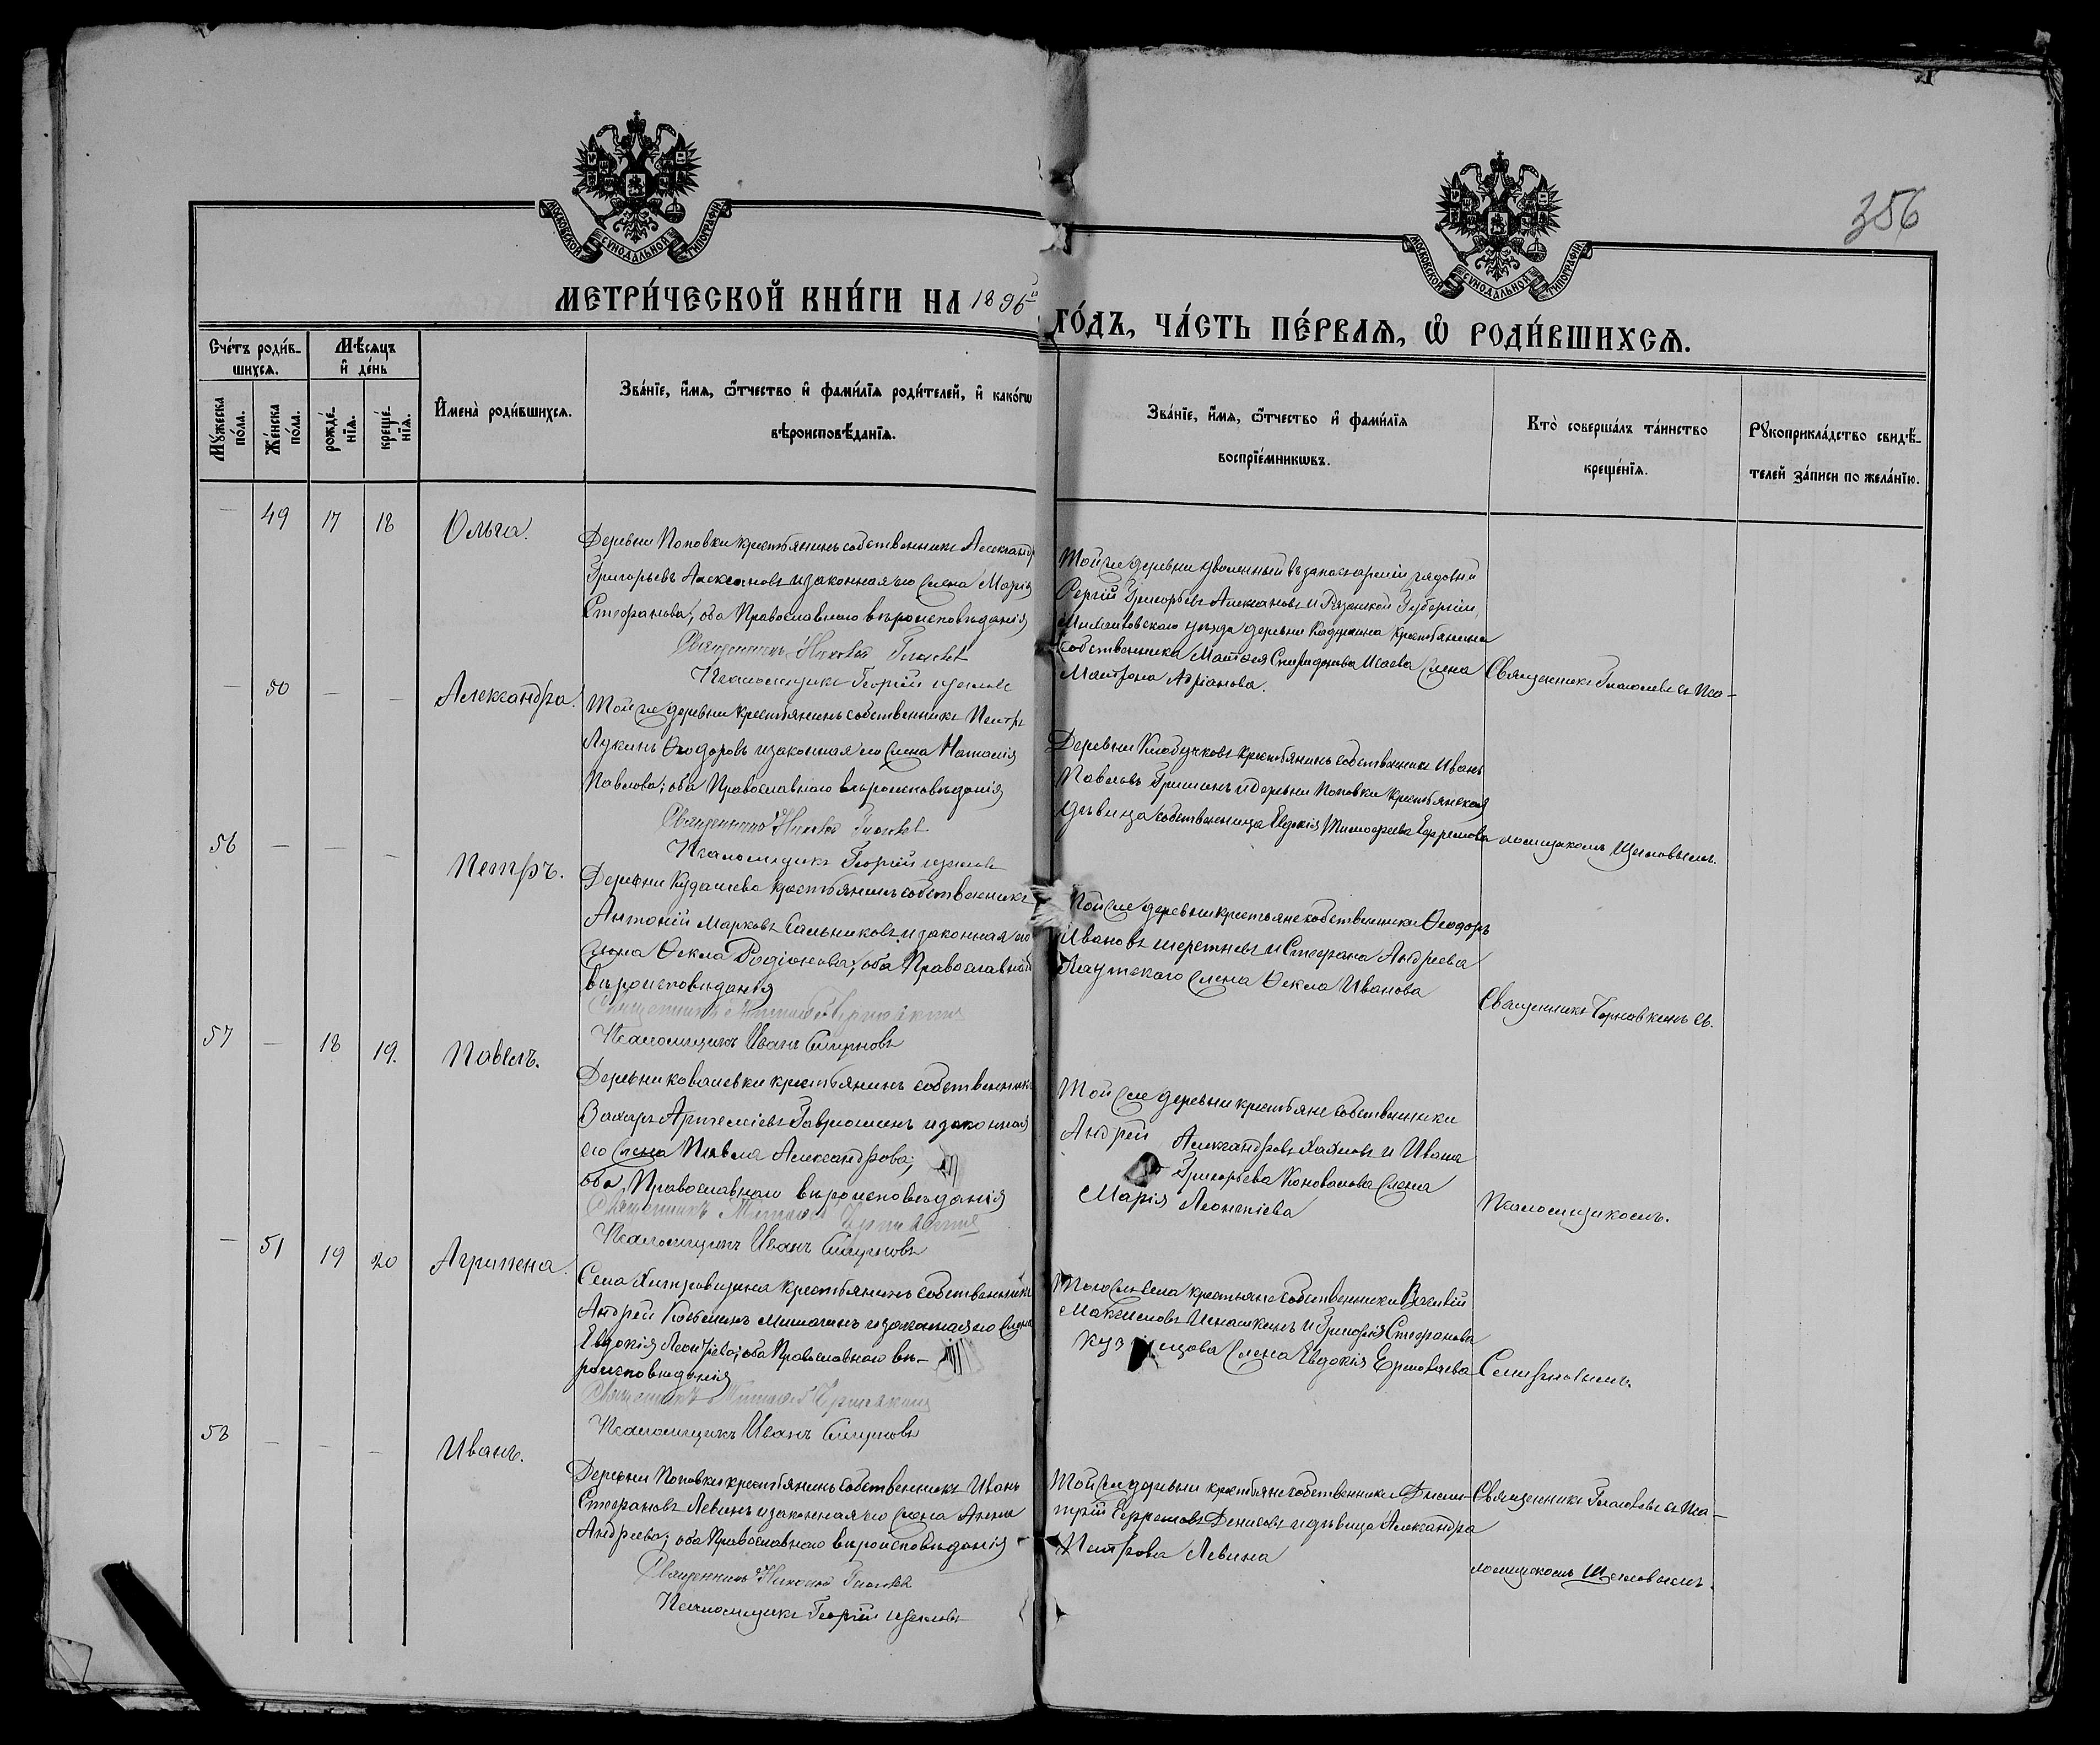 356
МОСКОВСКОЙ СѴНОДАЛЬНОЙ ТИПОГРАФІИ
МОСКОВСКОЙ СѴНОДАЛЬНОЙ ТИПОГРАФІИ
МЕТРИ́ЧЕСКОЙ КНИ́ГИ НА 1896й
ГО́ДЪ, ЧА́СТЬ ПЕ́РВАѦ, Ѡ҆ РОДИ́ВШИХСѦ.
Сче́тъ роди́в-
шихсѧ.
Мѣ́сѧцъ
и҆ де́нь
Мꙋ́жеска
по́ла.
Же́нска
по́ла.
рожде́-
нїѧ.
креще́-
нїѧ.
И҆мена̀ роди́вшихсѧ.
Зва́нїе, и҆́мѧ, ѻ҆́тчество и҆ фами́лїѧ роди́телей, и҆ како́гѡ
вѣроисповѣ́данїѧ.
Зва́нїе, и҆́мѧ, ѻ҆́тчество и҆ фами́лїѧ
воспрїе́мникѡвъ.
Кто̀ соверша́лъ та́инство
креще́нїѧ.
Рꙋкоприкла́дство свидѣ́-
телей за́писи по жела́нїю.
— 49 17 18 Ольга.
Деревни Поповки крестьянинъ собственникъ Александръ
Григорьевъ Алексановъ и законная его жена Марія
Стефанова; оба Православнаго вѣроисповѣданія
Священникъ Николай Глаголевъ
Псаломщикъ Георгій Щегловъ
Той же деревни уволенный въ запасъ арміи рядовой
Сергій Григорьевъ Алексановъ и Рязанской Губерніи,
Михайловскаго уѣзда деревни крестьянина
собственника Матвея Спиридонова Исаева жена
Матрона Адріанова.
Священникъ Глаголевъ съ Пса-
— 50 — — Александра.
Той же деревни крестьянинъ собственникъ Петръ
Лукинъ Ѳеодоровъ и законная его жена Наталія
Павлова; оба Православнаго вѣроисповѣданія
Священникъ Николай Глаголевъ
Псаломщикъ Георгій Щегловъ
Деревни крестьянинъ собственникъ Иванъ
Павловъ Гришинъ и деревни Поповки крестьянская
дѣвица собственница Евдокія Тимофеева Ефремова
ломщикомъ Щегловымъ.
56 — — — Петръ.
Деревни Кудашево крестьянинъ собственникъ
Антоній Марковъ Сальниковъ и законная его
жена Ѳекла Родіонова; оба Православнаго
вѣроисповѣданія
Священникъ
Псаломщикъ Иванъ Смирновъ
Той же деревни крестьяне собственники Ѳеодоръ
Ивановъ и Стефана Андреева
жена Ѳекла Иванова
Священникъ съ
57 — 18 19. Павелъ.
Деревни Ковалевки крестьянинъ собственникъ
Захаръ Артеміевъ Гаврюшинъ и законная
его жена Павла Александрова;
оба Православнаго вѣроисповѣданія
Священникъ
Псаломщикъ Иванъ Смирновъ
Той же деревни крестьяне собственники
Андрей Александровъ и Ивана
Григорьева Коновалова жена
Марія Леонтіева
Псаломщикомъ.
— 51 19 20 Агрипена.
Села крестьянинъ собственникъ
Андрей и законная его жена
Евдокія Леонтьева; оба Православнаго вѣ-
роисповѣданія
Священникъ
Псаломщикъ Иванъ Смирновъ
Того же села крестьяне собственники Василій
Максимовъ и Григорія Стефанова
Кузнецова жена Евдокія Ермолаева
Смирновымъ.
58 — — — Иванъ.
Деревни Поповки крестьянинъ собственникъ Иванъ
Стефановъ Левинъ и законная его жена Анна
Андреева; оба Православнаго вѣроисповѣданія
Священникъ Николай Глаголевъ
Псаломщикъ Георгій Щегловъ
Той же деревни крестьяне собственники Дими-
трій Ефремовъ Денисовъ и дѣвица Александра
Петрова Левина
Священникъ Глаголевъ съ Пса-
ломщикомъ Щегловымъ.